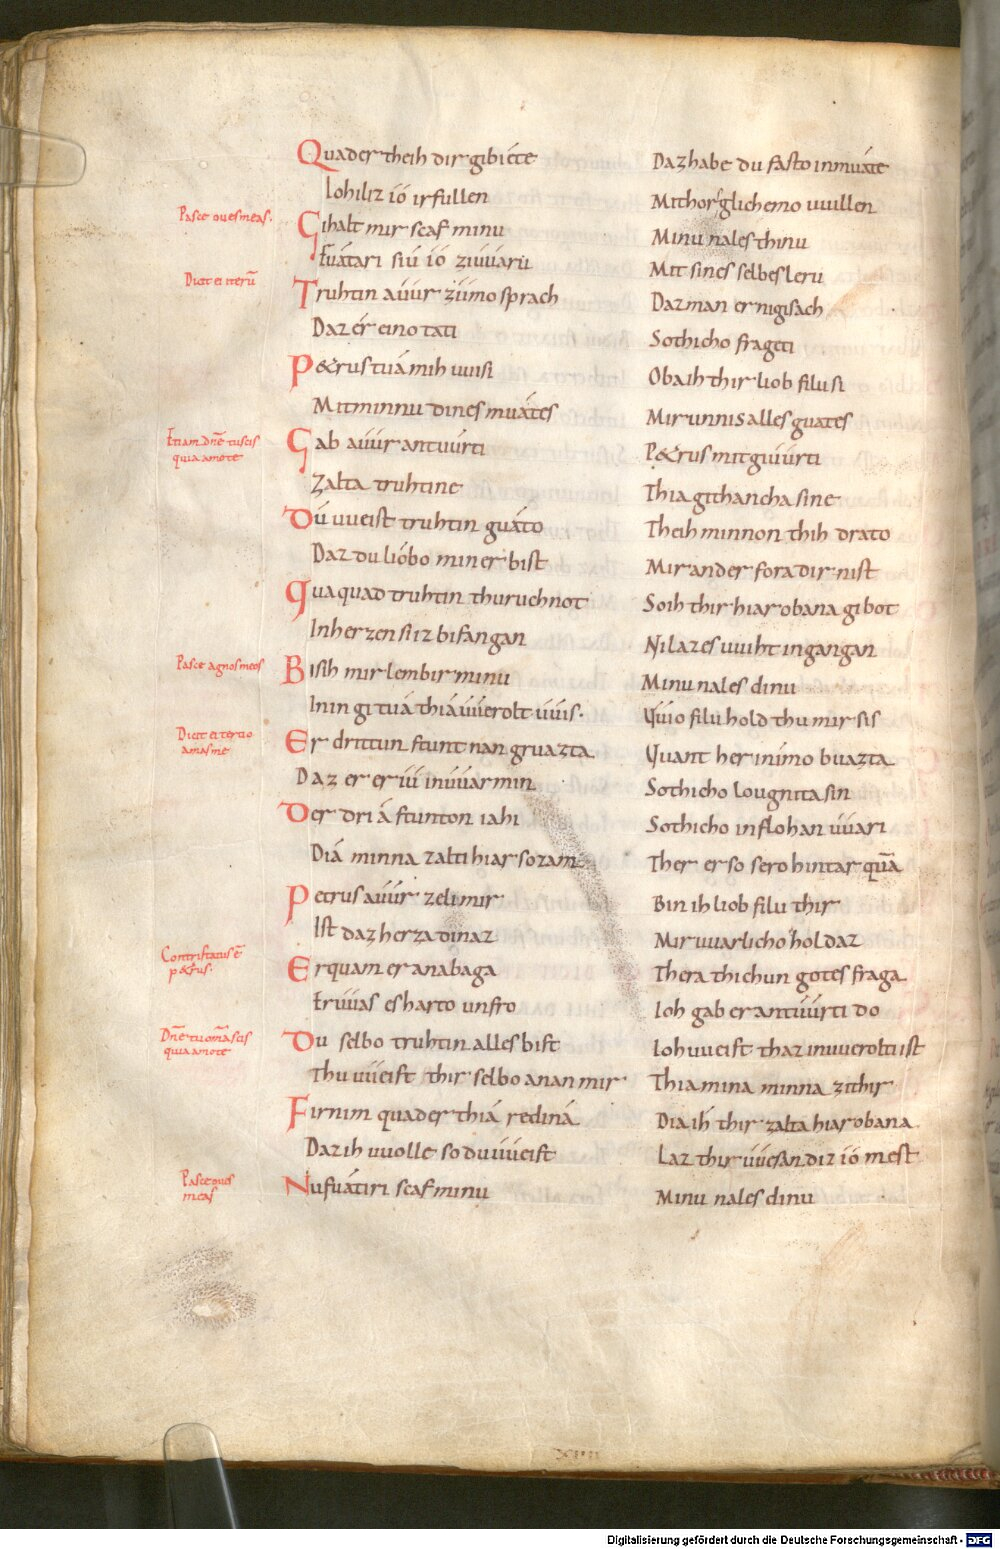 Quader theih dir gibiete Daz habe du fasto in muate
Ioh iliz ió irfullen Mit horsglichemo uuillen
Pasce oues meas.
Gihalt mir scaf minu Minu nales thinu
Fuátari siú ió ziuuaru Mit sines selbes leru
Dicit ei iterū
Truhtin auur zúmo sprach Daz man er nigisach
Daz ér eino tati So thicho frageti
Petrus tuá mih uuisi Oba ih thir liob filu si
Mit minnu dines muátes Mir unnis alles guates
Etiam dn̄e tu scis quia amo te
Gab auur antuúrti Petrus mit guiúrti
Zalta truhtine Thia githancha sine
Dú uueist truhtin guáto Theih minnon thih drato
Daz du lióbo min er bist Mir ander fora dir nist
Qua quad truhtin thuruch not So ih thir hiar obana gibot
In herzen si iz bifangan Ni laz es uuiht ingangan
Pasce agnos meos
Bisih mir lembir minu Minu nales dinu
In in gi tuá thiá uuerolt uuis. Uuio filu hold thu mir sis
Dicit ei tertio amas me
Er drittun stunt nan gruazta Quant her in imo buazta
Daz er er iu in uuar min So thicho lougnita sin
Der dri á stunton iahi So thicho in flohan uuari
Diá minna zalti hiar so zam Ther er so sero hintar quā
Petrus auur zeli mir Bin ih liob filu thir
Ist daz herza dinaz Mir uuarlicho holdaz
Contristatus ē petrus.
Erquam er anabaga Thera thichun gotes fraga
Er uuas es harto unfro Ioh gab er antuurti do
Dn̄e tu om̄a scis quia amo te
Du selbo truhtin alles bist Ioh uueist thaz in uuerolti ist
Thu uueist thir selbo anan mir Thia mina minna zi thir
Firnim quader thiá rediná Dia ih thir zalta hiar obana
Daz ih uuolle so du uueist Laz thir uuesan diz ió mest
Pasce oues meas
Nu fuátiri scaf minu Minu nales dinu
XIIII
Digitalisierung gefördert durch die Deutsche Forschungsgemeinschaft - DFG